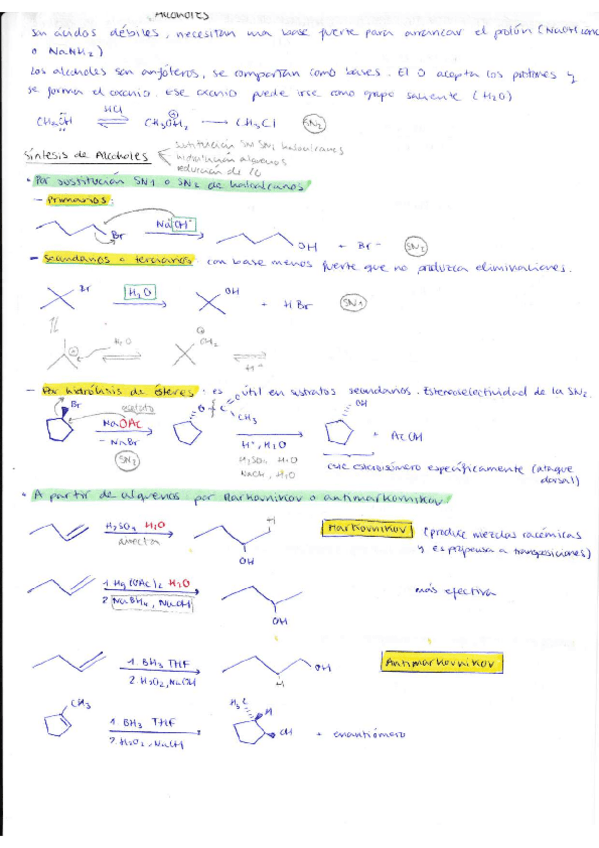 Alcoholes
son ácidos débiles, necesitan una base fuerte para arrancar el protón (NaOH conc
o NaNH2)
Los alcoholes son anfóteros, se comportan como bases. El O acepta los protones y
se forma el oxonio. Ese oxonio puede irse como grupo saliente (H2O)
HCl
CH3OH ⇌ CH3OH2 → CH3Cl SN2
Síntesis de Alcoholes
sustitución SN1 SN2 haloalcanos
hidratación alquenos
reducción de
• Por sustitución SN1 o SN2 de haloalcanos
- Primarios:
Br NaOH OH + Br- SN2
- Secundarios o terciarios con base menos fuerte que no produzca eliminaciones.
Br H2O OH + HBr SN1
H2O OH2 -H+
- Por hidrólisis de ésteres: es útil en sustratos secundarios. Estereoselectividad de la SN2.
Br acetato O C O CH3 OH
NaOAc + AcOH
- NaBr H+, H2O
SN2 H2SO4, H2O
NaOH, H2O
específicamente (ataque
dorsal)
• A partir de alquenos por Markovnikov o antimarkovnikov
H2SO4 H2O H Markovnikov (produce mezclas racémicas
directa OH y es propensa a transposiciones)
1 Hg(OAc)2 H2O más efectiva
2 NaBH4, NaOH OH
1. BH3 THF OH Antimarkovnikov
2. H2O2, NaOH H
CH3 H3C H
1 BH3 THF OH + enantiómero
2. H2O2, NaOH